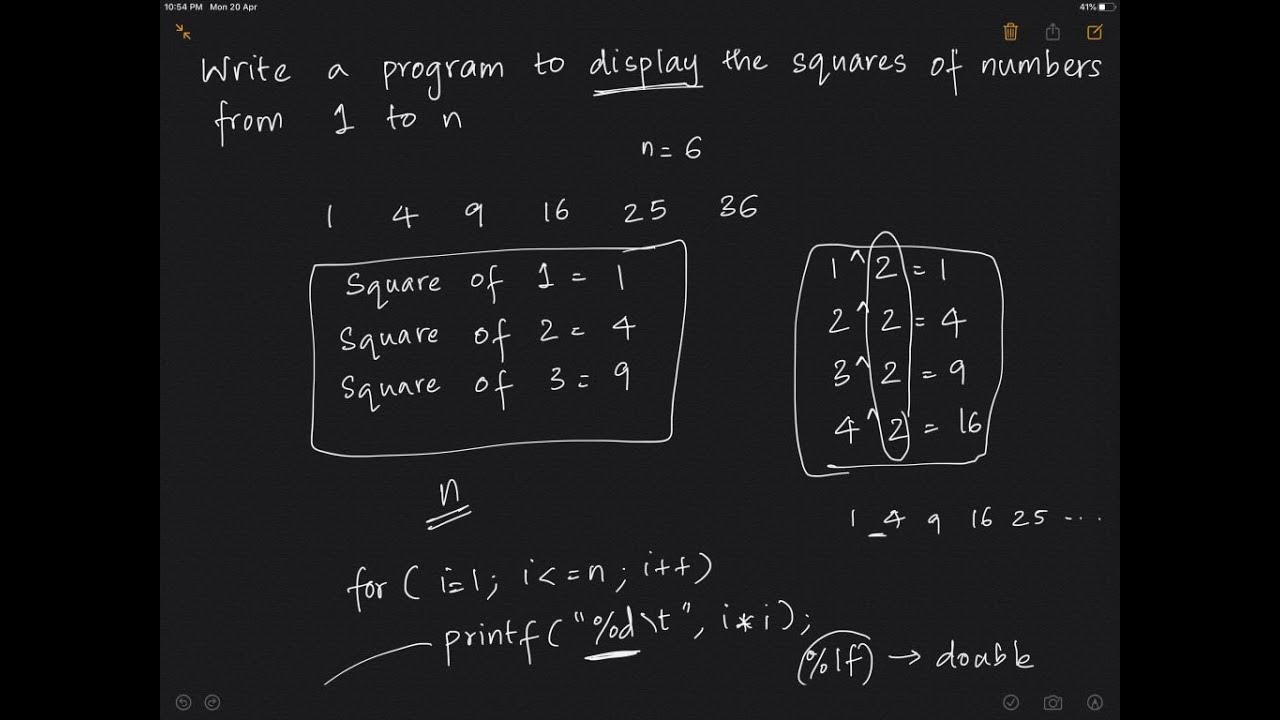 10:54 PM Mon 20 Apr
41%
Write a program to display the squares of numbers
from 1 to n
n = 6
1 4 9 16 25 36
Square of 1 = 1
Square of 2 = 4
Square of 3 = 9
1 ^ 2 = 1
2 ^ 2 = 4
3 ^ 2 = 9
4 ^ 2 = 16
n
1 4 9 16 25 ...
for ( i=1; i<=n ; i++)
printf( "%d\t", i*i);
(%lf) → double